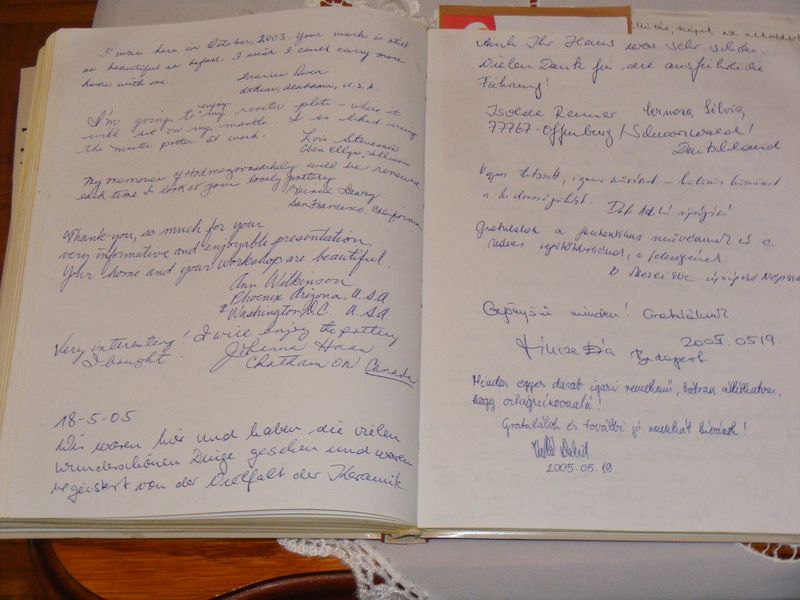 I was here in October, 2003. Your work is still
as beautiful as before. I wish I could carry more
home with me.
Athens, Alabama, U.S.A.
I'm going to enjoy my rooster plate - where it
will sit on my mantle. I so liked seeing
the master potter at work.
Lois Stevenson
Glen Ellyn, Illinois
My memories of Hodmezovasarhely will be renewed
each time I look at your lovely pottery
San Francisco, California
Thank-you, so much for your
very informative and enjoyable presentation.
Your home and your workshop are beautiful.
Ann Wilkinson
Phoenix Arizona, U.S.A
Washington D.C. U.S.A.
Very interesting! I will enjoy the pottery
I bought.
Chatham ON Canada
18-5-05
Wir waren hier und haben die vielen
wunderschönen Dinge gesehen und waren
begeistert von der Vielfalt der Keramik
Auch Ihr Haus war sehr schön.
Vielen Dank für die ausführliche
Führung!
Isolde Renner Silvia
77767-Offenburg/Schwarzwald!
Deutschland
Gratulálok a művelemnek és a
Gyönyörű minden! Gratulálunk
2005.0519.
Budapest
Minden egyes darab igazi remekmű, bátran állíthatom,
hogy világszínvonalú!
Gratulálok és további jó munkát kívánok!
2005.05.19.